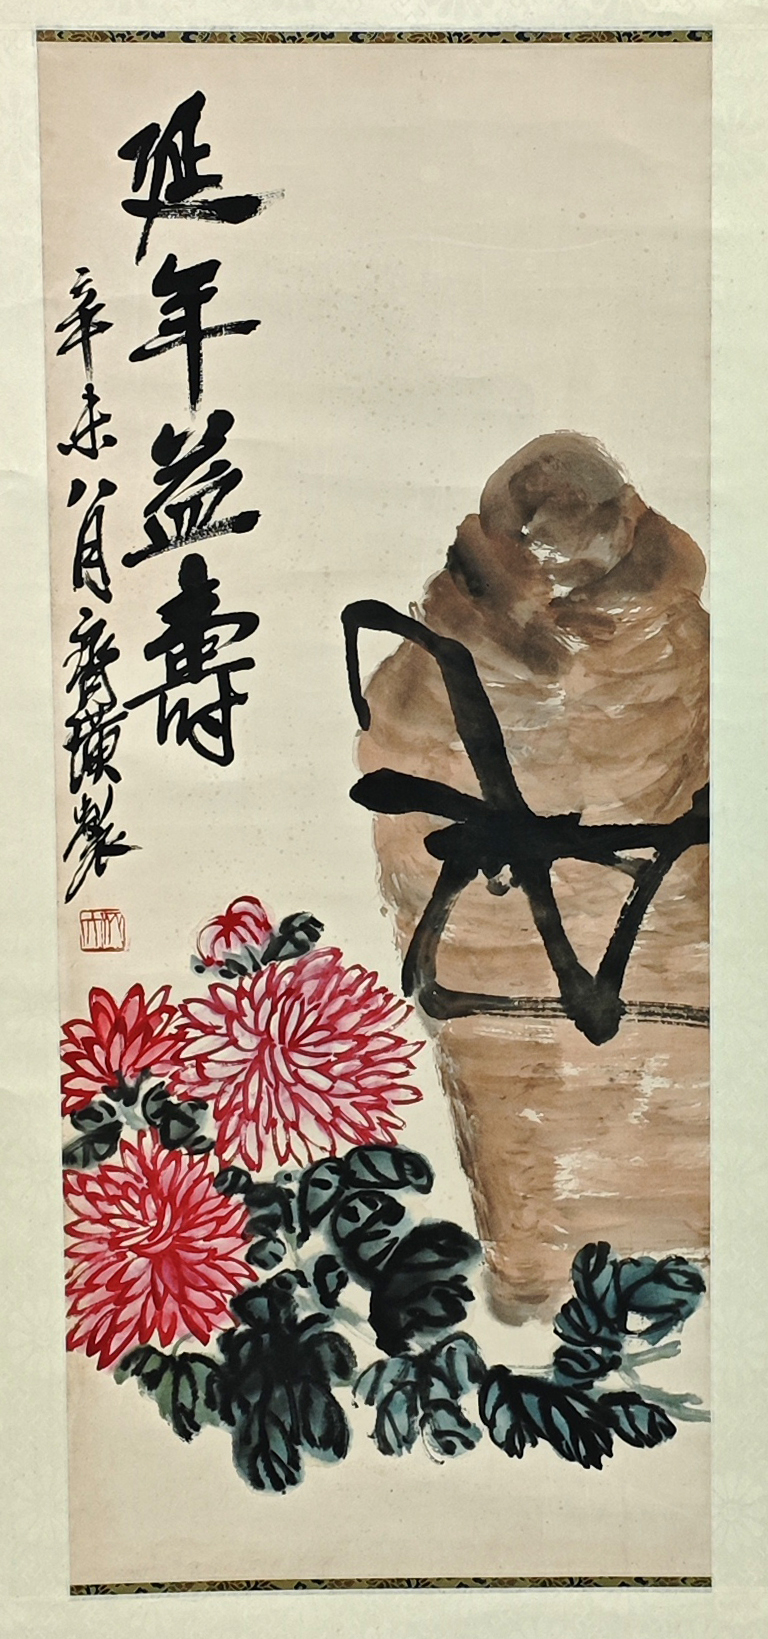 延年益壽
辛未八月齊璜製